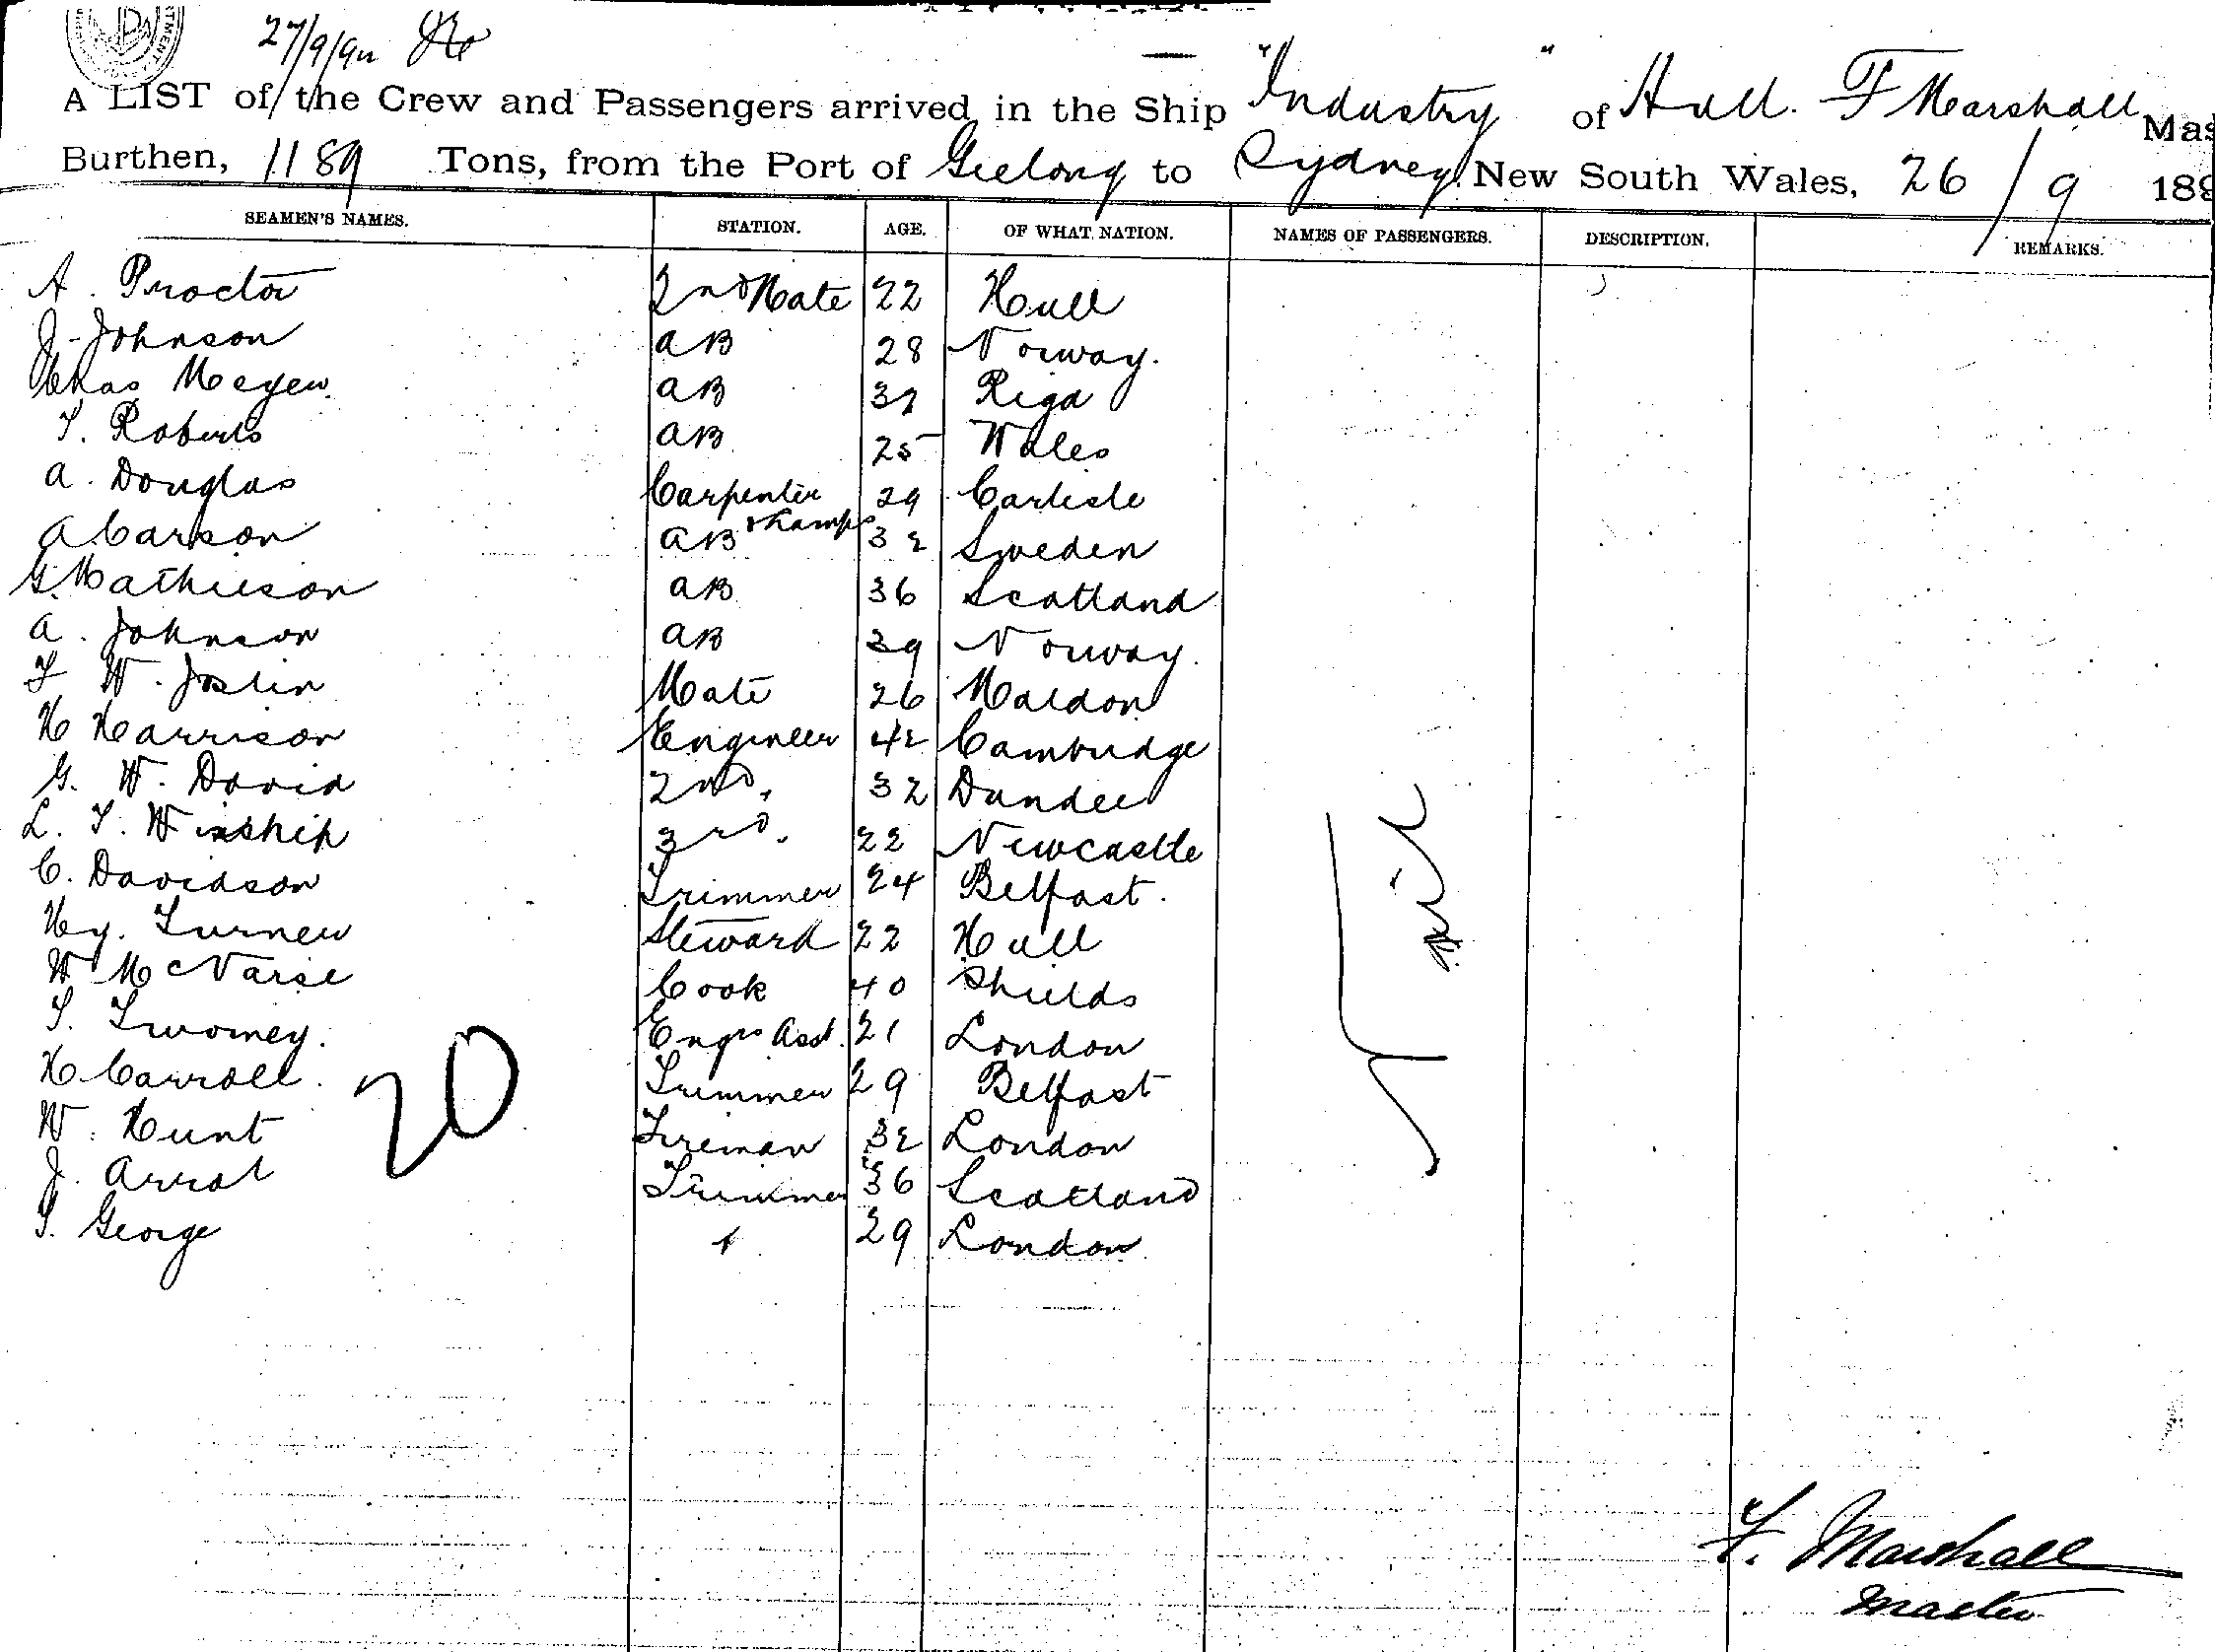 27/9/9
A LIST of the Crew and Passengers arrived in the Ship "Industry" of Hull. F Marshall Mas
Burthen, 1189 Tons, from the Port of Geelong to Sydney New South Wales, 26/9 189
SEAMEN'S NAMES. STATION. AGE. OF WHAT NATION. NAMES OF PASSENGERS. DESCRIPTION. REMARKS.
A. Proctor 2nd Mate 22 Hull
J. Johnson AB 28 Norway.
Chas Meyer. AB 37 Riga
T. Roberts AB 25 Wales
A. Douglas Carpenter 29 Carlisle
A Carson AB & Lamps 32 Sweden
G. Mathieson AB 36 Scotland
A. Johnson AB 39 Norway.
F W. Joslin Mate 26 Maldon
H Harrison Engineer 42 Cambridge
G. W. David 2nd, 32 Dundee
L. T. Winship 3rd. 22 Newcastle
C. Davidson Trimmer 24 Belfast.
Hy. Turner Steward 22 Hull
W Mc Cook 40 Shields
T. Twomey. Engrs Asst. 21 London
H Carroll. Trimmer 29 Belfast
W. Hunt Fireman 32 London
J. Arrol Trimmer 36 Scotland
T. George 29 London
20
Nil
F. Marshall
Master